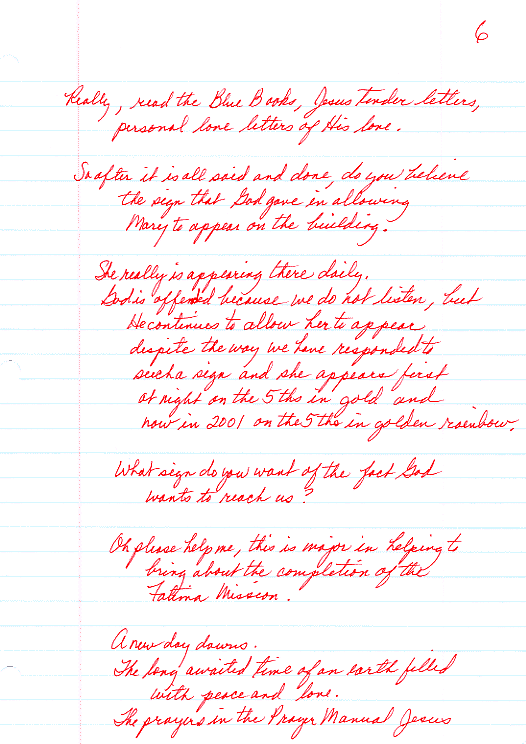 6
Really, read the Blue Books, Jesus tender letters,
personal love letters of His love.
So after it is all said and done, do you believe
the sign that God gave in allowing
Mary to appear on the building?
She really is appearing there daily.
God is offended because we do not listen, but
He continues to allow her to appear
despite the way we have responded to
such a sign and she appears first
at night on the 5ths in gold and
now in 2001 on the 5ths in golden rainbow.
What sign do you want of the fact God
wants to reach us?
Oh please help me, this is major in helping to
bring about the completion of the
Fatima Mission.
A new day dawns.
The long awaited time of an earth filled
with peace and love.
The prayers in the Prayer Manual Jesus